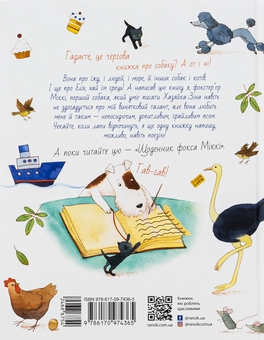 Гадаєте, це чергова
книжка про собаку? А от і ні!
Вона про їжу, і людей, і море, й інших собак і котів.
І ще про бліх, хай їм грець! А написав цю книгу я, фокстер'єр
Міккі, перший собака, який уміє писати. Хазяйка Зіна навіть
не здогадується про мій винятковий талант, але вона любить
мене й таким — непосидючим, допитливим, грайливим псом.
Чекайте, коли лапи відпочинуть, я ще одну книжку напишу,
можливо, навіть поезію!
А поки читайте цю — «Щоденник фокса Міккі».
Гав-гав!
ISBN 978-617-09-7436-5
9786170974365
Книжки,
які роблять
щасливими
ranok.com.ua
@ranok.ua
@ranokcomua